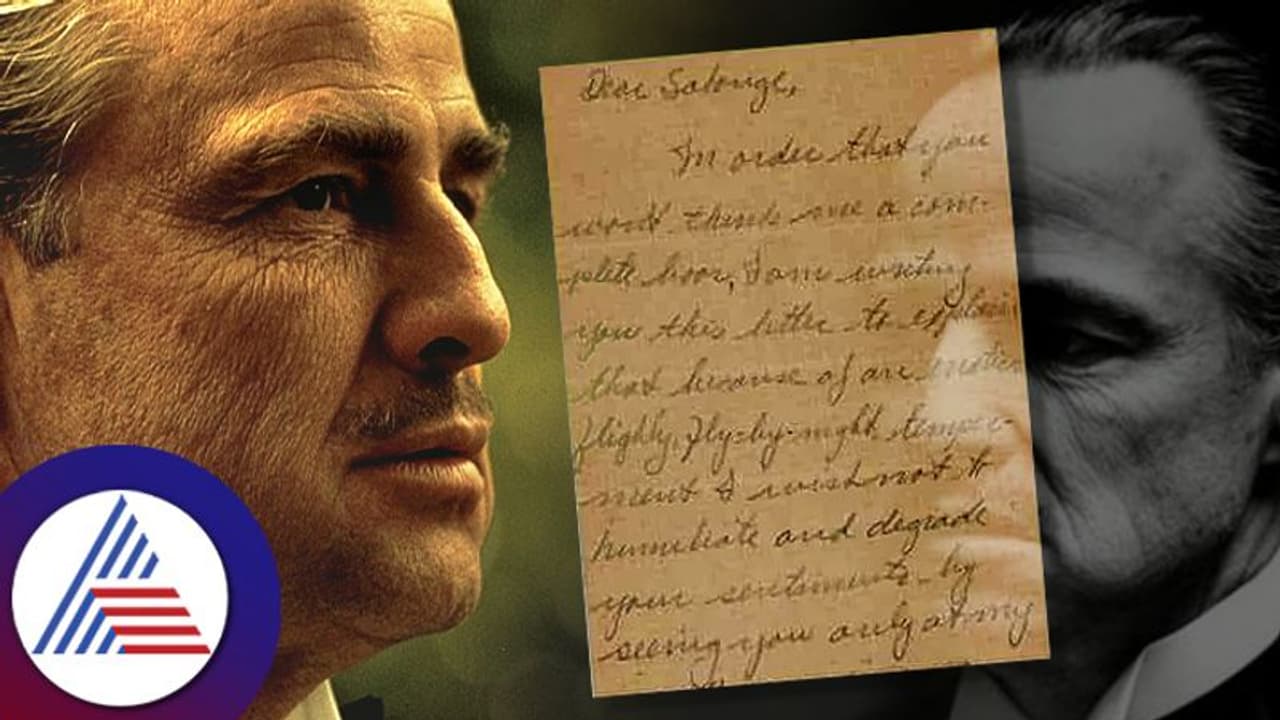 Dear Solonge,
In order that you
wont think me a com-
plete boor, I am writing
you this letter to explain
that because of an
flighty, fly-by-night temper-
ment I wish not to
humiliate and degrade
your sentiments by
seeing you only at my